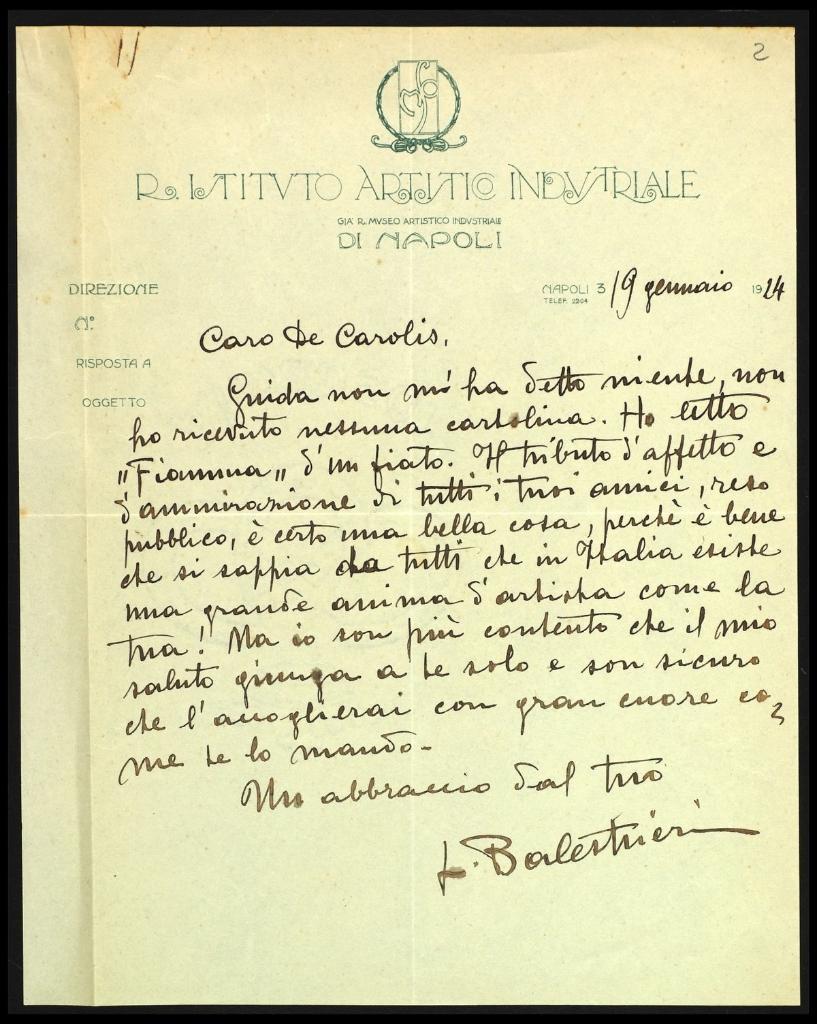 2
R. ISTITVTO ARTISTICO INDVSTRIALE
GIA' R. MVSEO ARTISTICO INDVSTRIALE
DI NAPOLI
DIREZIONE
NAPOLI 3 19 gennaio 1924
TELEF. 2204
N.º
RISPOSTA A
OGGETTO
Caro De Carolis,
Guida non mi ha detto niente, non
ho ricevuto nessuna cartolina. Ho letto
"Fiamma" d'un fiato. Il tributo d'affetto e
d'ammirazione di tutti i tuoi amici, reso
pubblico, è certo una bella cosa, perchè è bene
che si sappia da tutti che in Italia esiste
una grande anima d'artista come la
tua! Ma io son più contento che il mio
saluto giunga a te solo e son sicuro
che l'accoglierai con gran cuore co-
me te lo mando.-
Un abbraccio dal tuo
L. Balestrieri